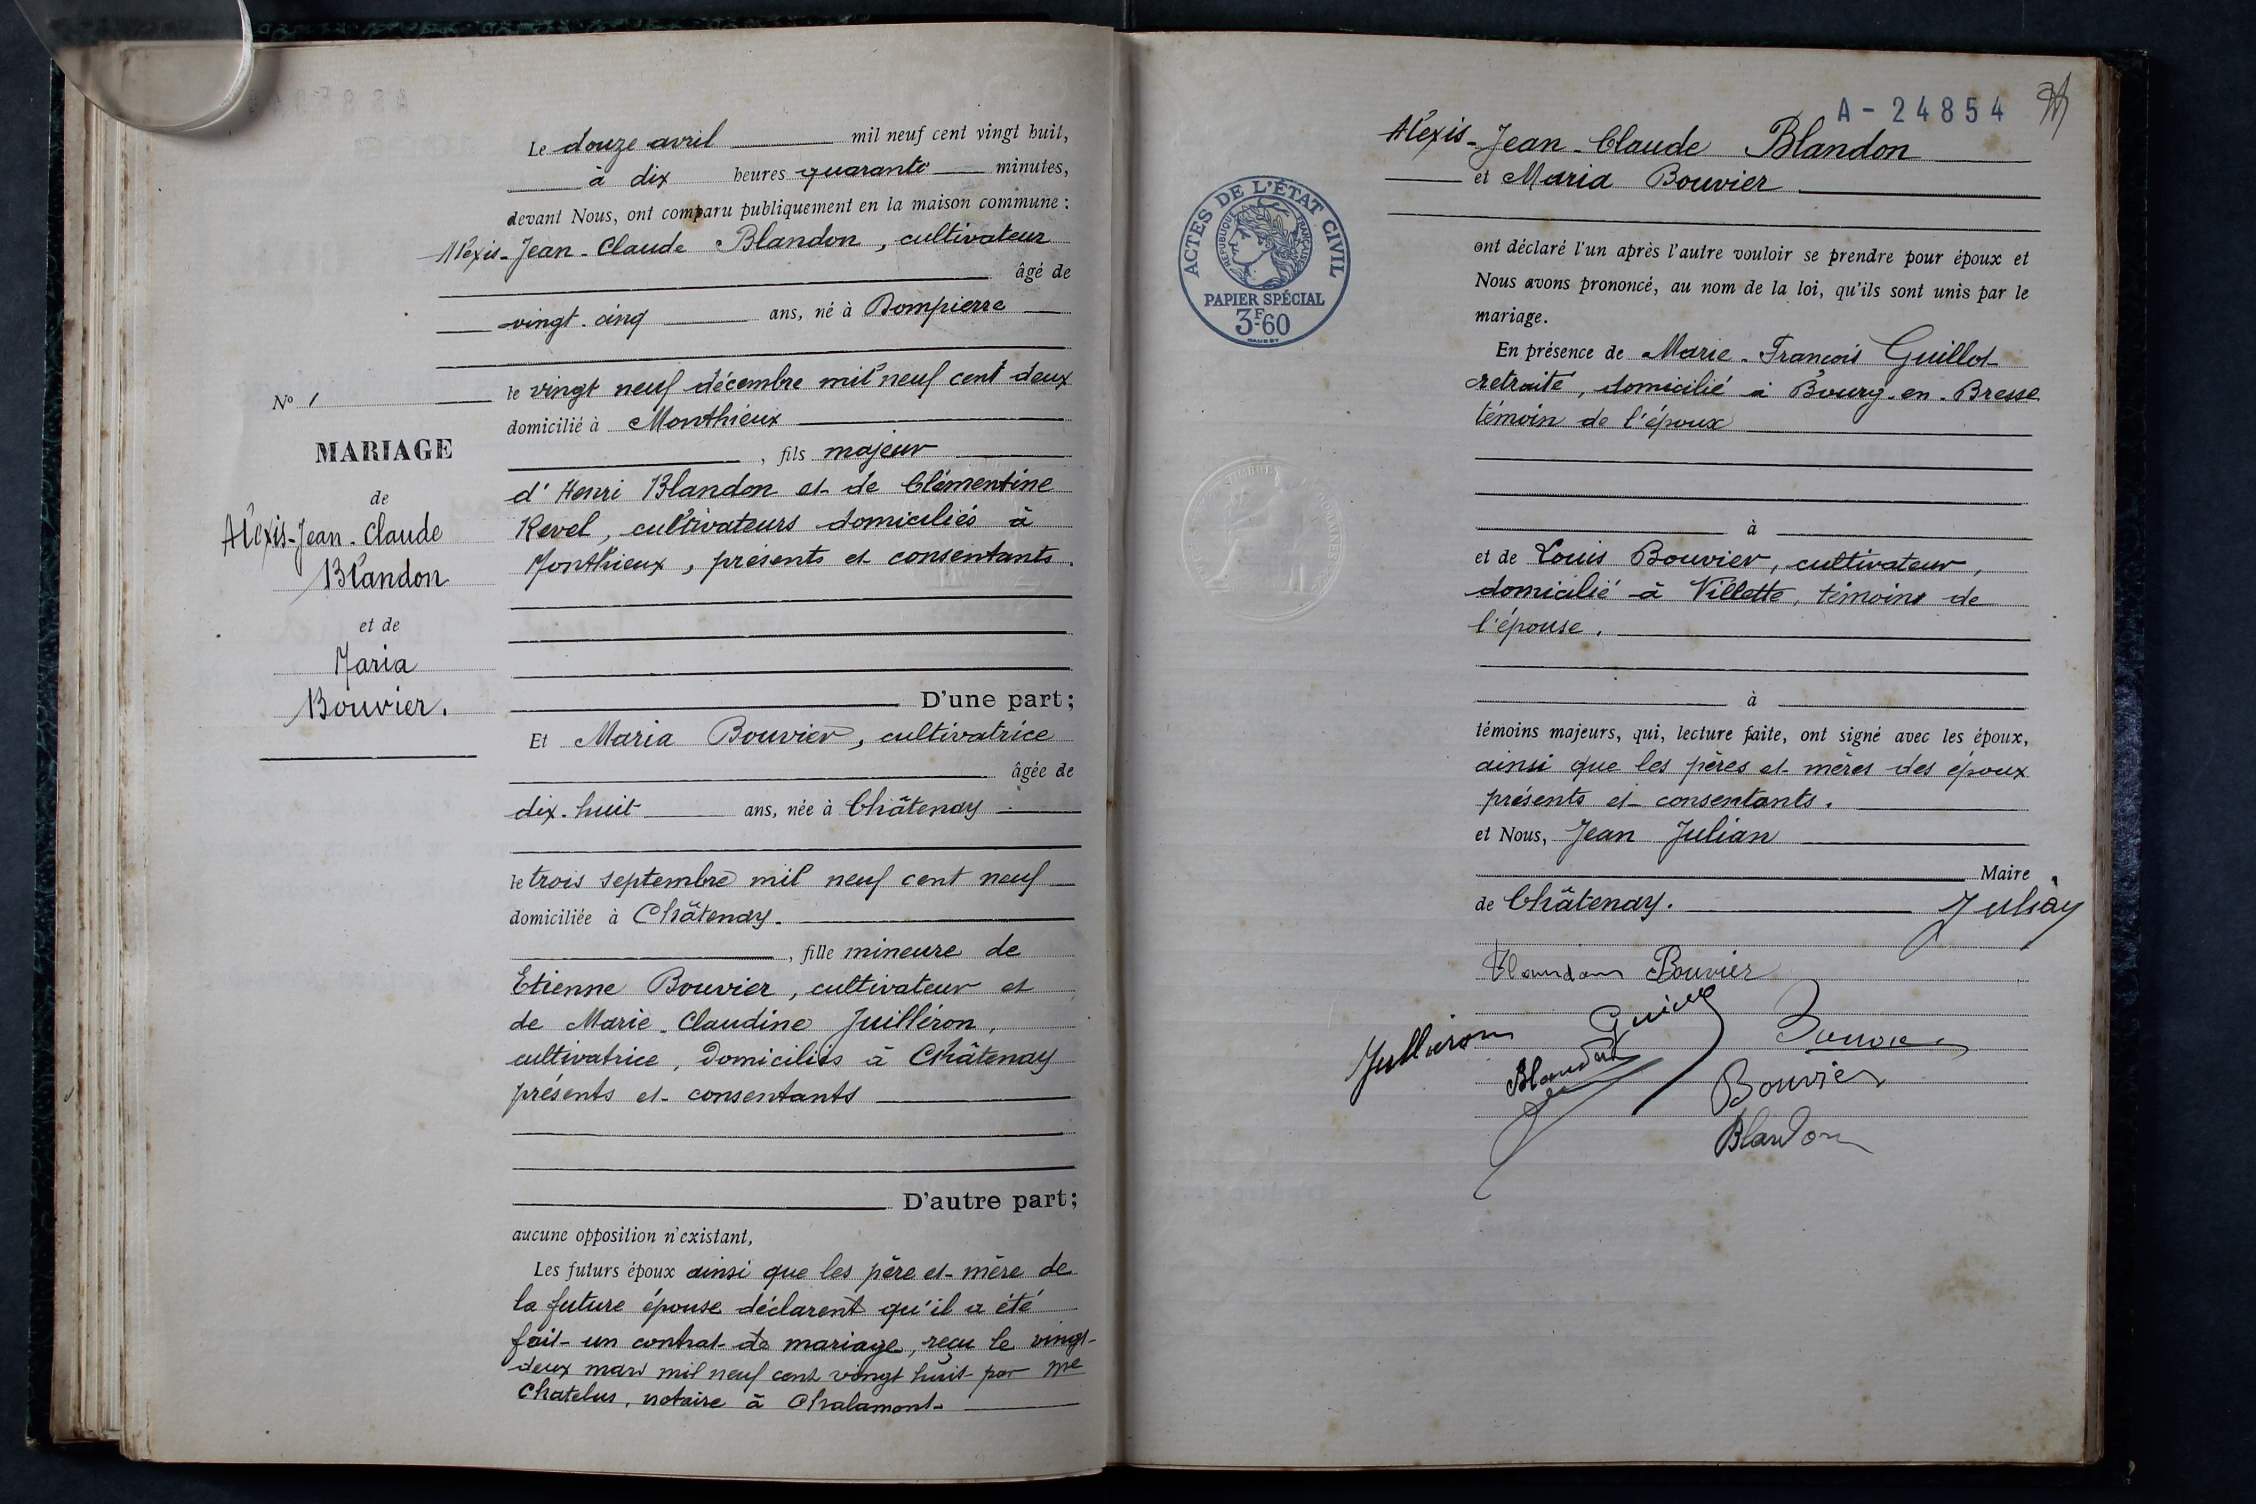 Le douze avril mil neuf cent vingt huit,
à dix heures quarante minutes,
devant Nous, ont comparu publiquement en la maison commune :
Alexis-Jean-Claude Blandon, cultivateur
âgé de
vingt-cinq ans, né à Dompierre
le vingt neuf décembre mil neuf cent deux
domicilié à Monthieux
, fils majeur
d'Henri Blandon et de Clémentine
Revel, cultivateurs domiciliés à
Monthieux, présents et consentants.
D'une part ;
Nº 1
MARIAGE
de
Alexis-Jean-Claude
Blandon
et de
Maria
Bouvier.
Et Maria Bouvier, cultivatrice
âgée de
dix-huit ans, née à Châtenay
le trois septembre mil neuf cent neuf
domiciliée à Châtenay.
, fille mineure de
Etienne Bouvier, cultivateur et
de Marie-Claudine Juilléron,
cultivatrice, domiciliés à Châtenay
présents et consentants
D'autre part ;
aucune opposition n'existant,
Les futurs époux ainsi que les père et mère de
la future épouse déclarent qu'il a été
fait un contrat de mariage, reçu le vingt-
deux mars mil neuf cent vingt huit par Me
Chatelus, notaire à Chalamont.
A-24854
Alexis-Jean-Claude Blandon
et Maria Bouvier
ACTES DE L'ÉTAT CIVIL
RÉPUBLIQUE FRANÇAISE
PAPIER SPÉCIAL
3F60
ont déclaré l'un après l'autre vouloir se prendre pour époux et
Nous avons prononcé, au nom de la loi, qu'ils sont unis par le
mariage.
En présence de Marie-François Guillot
retraité, domicilié à Bourg-en-Bresse
témoin de l'époux
à
et de Louis Bouvier, cultivateur,
domicilié à Villette, témoins de
l'épouse.
à
témoins majeurs, qui, lecture faite, ont signé avec les époux,
ainsi que les pères et mères des époux
présents et consentants.
et Nous, Jean Julian
Maire
de Châtenay. Julian
Blandon Bouvier
Juilleron
Blandon
Bouvier
Blandon